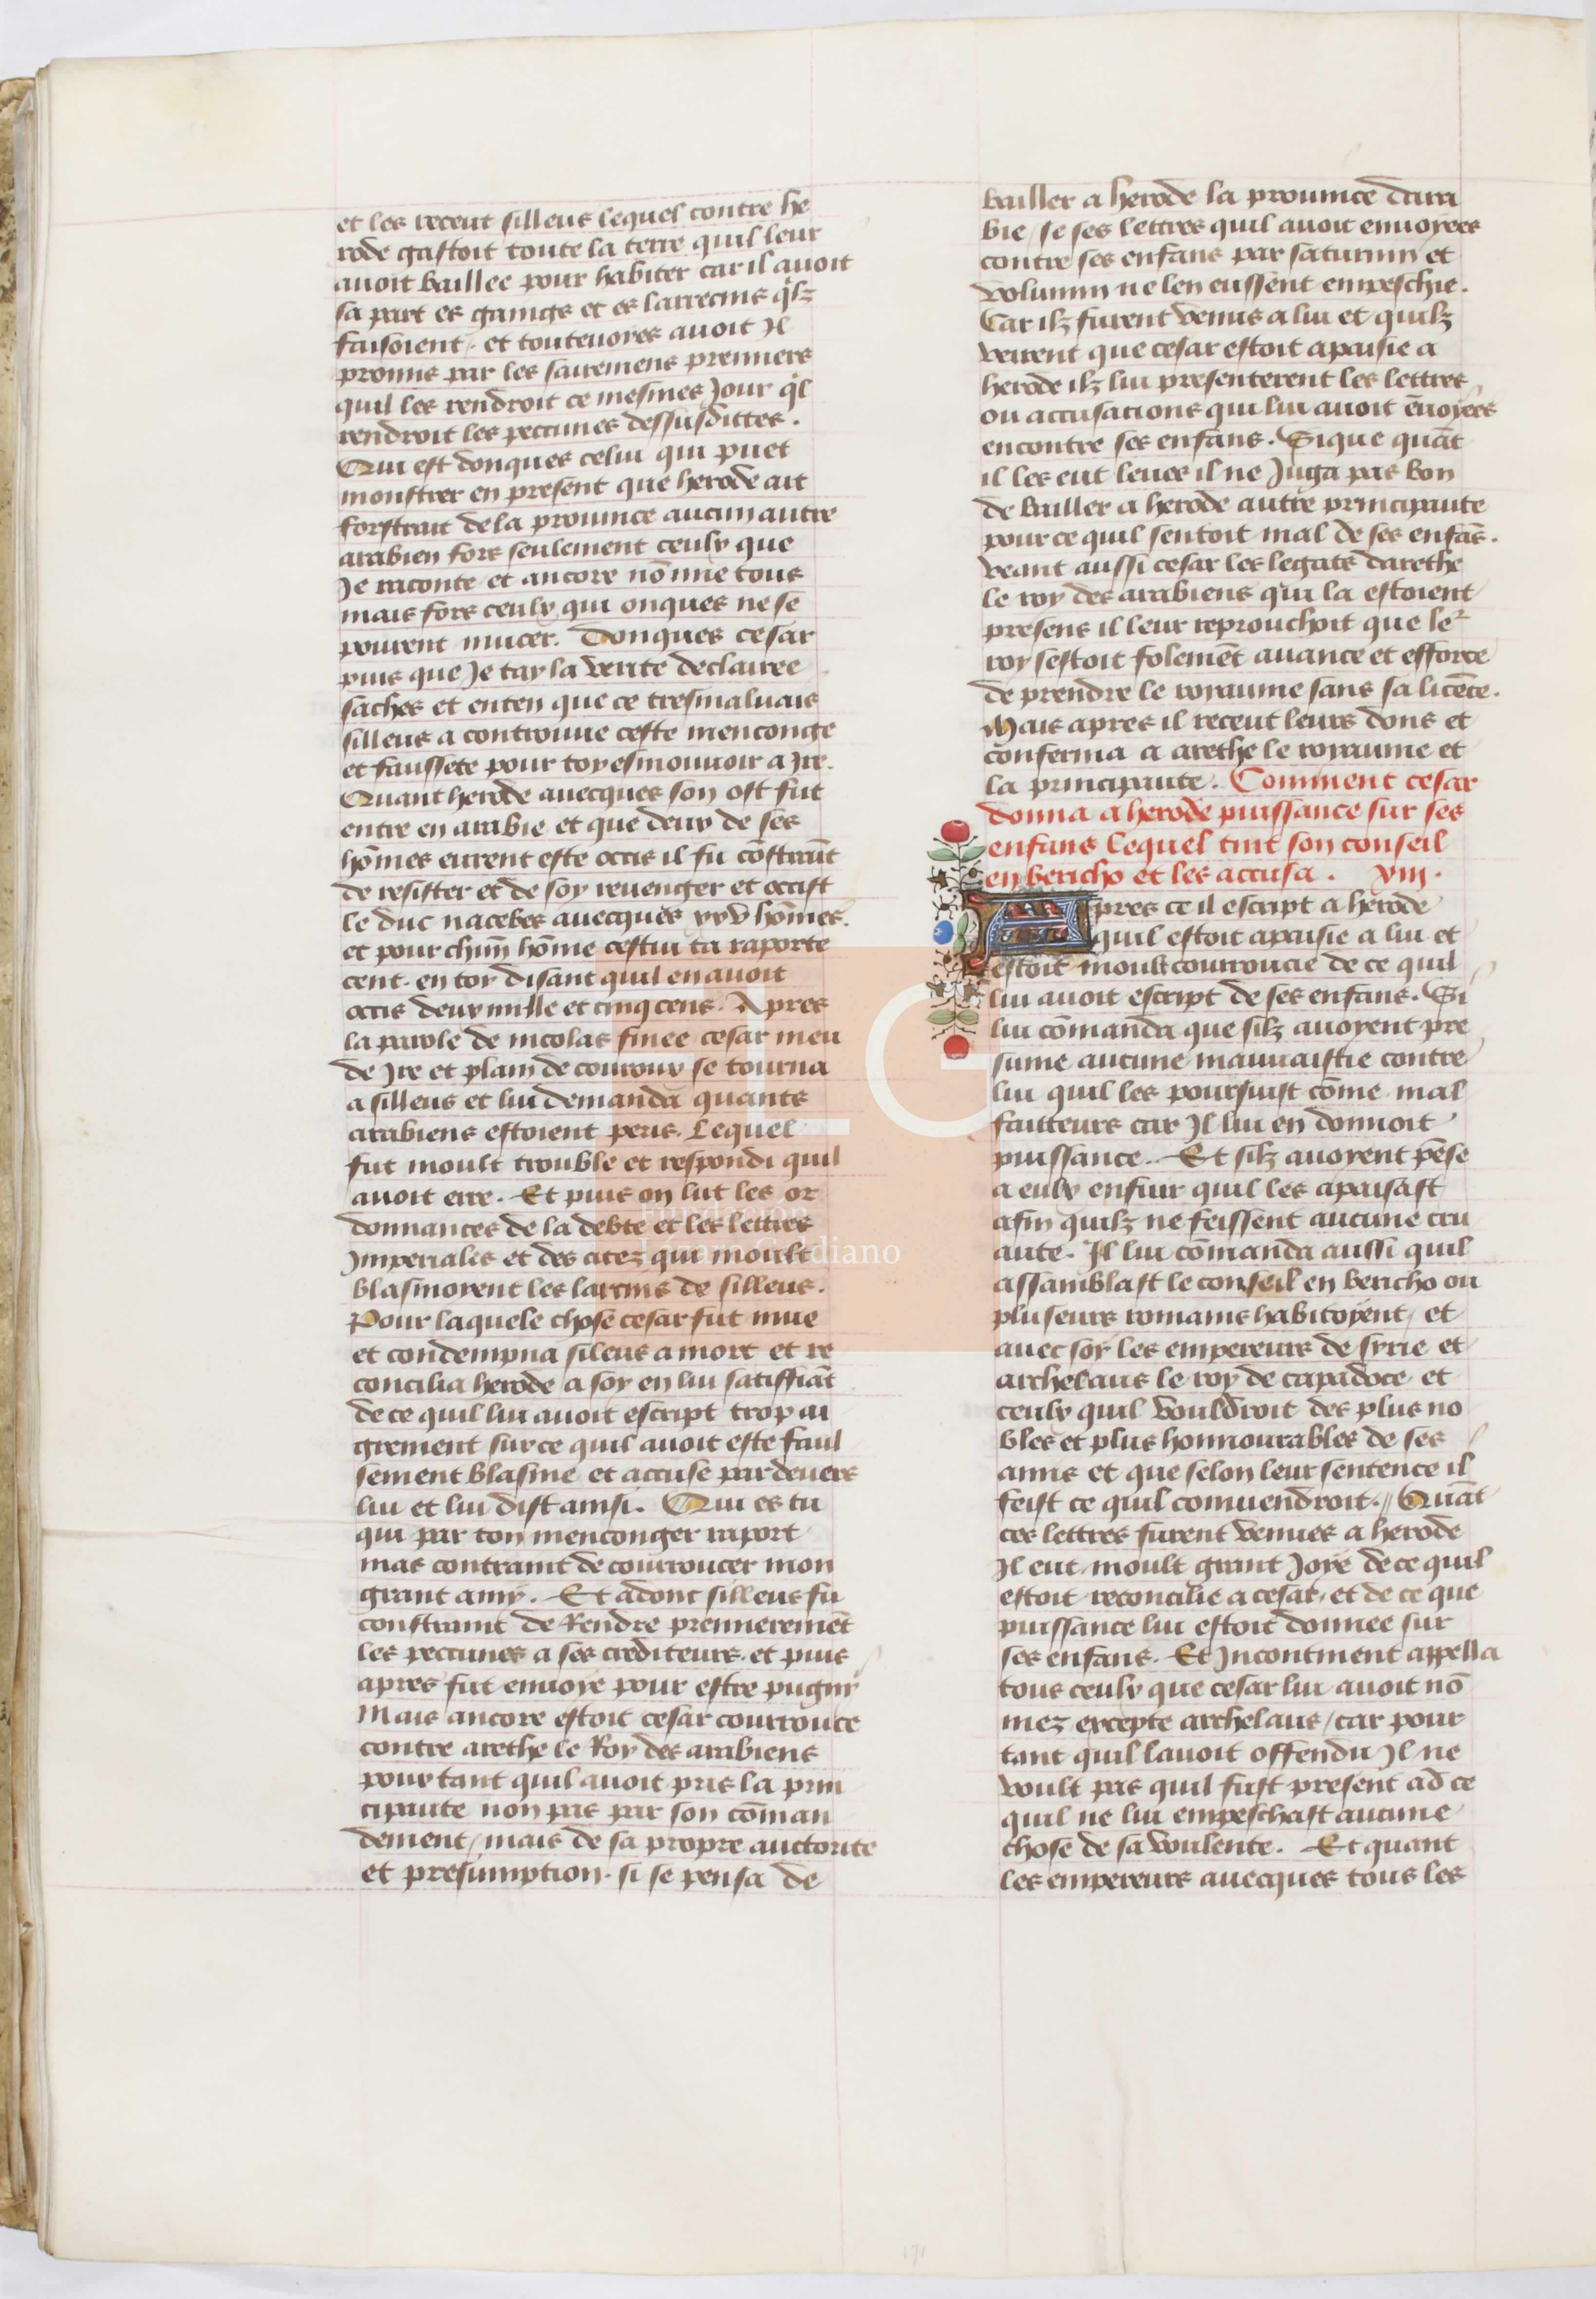 et les receut silleus lequel contre he
rode gastoit toute la terre quil leur
auoit baillee pour habiter car il auoit
sa part es gaings et es larrecins qlz
faisoient et toutenoyes auoit Il
promis par les sairemens premiers
quil les rendroit ce mesmes Jour ql
rendroit les peccunes dessusdittes.
Qui est donques celui qui puet
monstrer en present que herode ait
forstrait de la prouince aucun autre
arabien fors seulement ceulx que
Je raconte et ancore nō mie tous
mais fors ceulx qui onques ne se
peurent mucer. Donques cesar
puis que Je tay la verite declairee
saches et enten que ce tresmaluais
silleus a controuue ceste menconge
et faussete pour toy esmouuoir a Jre.
Quant herode auecques son ost fut
entre en arabie et que deux de ses
hōmes eurent este occis il fu cōstraīt
de resister et de soy reuenger et occist
le duc nacebes auecques xxv hōmes.
et pour chūn hōme cestui ta raporte
cent. en toy disant quil en auoit
occis deux mille et cinq cens. Apres
la parole de nicolas finee cesar meu
de Jre et plain de courroux se tourna
a silleus et lui demanda quants
arabiens estoient peris. Lequel
fut moult trouble et respondi quil
auoit erre. Et puis on lut les or
donnances de la debte et les lettres
Imperiales et des citez qui moult
blasmoyent les larcins de silleus.
Pour laquele chose cesar fut mue
et condempna sileus a mort et re
concilia herode a soy en lui satiffiāt
de ce quil lui auoit escript trop ai
grement sur ce quil auoit este faul
sement blasme et accuse par deuers
lui et lui dist ainsi. Qui es tu
qui par ton menconger raport
mas contraint de courroucer mon
grant amy. Et adonc silleus fu
constraint de Rendre premieremēt
les peccunes a ses crediteurs. et puis
apres fut enuoye pour estre pugny
Mais ancore estoit cesar courrouce
contre arethe le Roy des arabiens
pour tant quil auoit pris la prin
cipaute non pas par son cōman
dement / mais de sa propre auctorite
et presumption. si se pensa de
bailler a herode la prouince dara
bie / se ses lettres quil auoit enuoyees
contre ses enfans par saturnin et
volumin ne len eussent empeschie.
Car ilz furent venus a lui et quilz
veirent que cesar estoit apaisie a
herode ilz lui presenterent les lettres
ou accusations qui lui auoit ēuoyees
encontre ses enfans. Sique quāt
il les eut leues il ne Juga pas bon
de bailler a herode autre principaute
pour ce quil sentoit mal de ses enfās.
veant aussi cesar les legats darethe
le roy des arabiens qui la estoient
presens il leur reprouchoit que le²
roy sestoit folemēt auance et efforce
de prendre le royaume sans sa licēce.
Mais apres il receut leurs dons et
conferma a arethe le royaume et
la principaute. Comment cesar
donna a herode puissance sur ses
enfans lequel tint son conseil
en bericho et les accusa. viij.
Apres ce il escript a herode
quil estoit apaisie a lui et
estoit moult courroucie de ce quil
lui auoit escript de ses enfans. Si
lui cōmanda que silz auoyent pre
sume aucune mauuaistie contre
lui quil les poursuist cōme mal
faitteurs car Il lui en donnoit
puissance. Et silz auoyent pēse
a eulx enfuir quil les apaisast
afin quilz ne feissent aucune cru
aute. Il lui cōmanda aussi quil
assamblast le conseil en bericho ou
pluseurs romains habitoyent / et
auec soy les empereurs de syrie et
archelaus le roy de capadoce et
ceulx quil vouldroit des plus no
bles et plus honnourables de ses
amis et que selon leur sentence il
feist ce quil conuendroit. // Quāt
ces lettres furent venues a herode
Il eut moult grant Joye de ce quil
estoit reconcilie a cesar, et de ce que
puissance lui estoit donnee sur
ses enfans. Et Incontinent appella
tous ceulx que cesar lui auoit nō
mez excepte archelaus / car pour
tant quil lauoit offendu Il ne
voult pas quil fust present ad ce
quil ne lui empeschast aucune
chose de sa voulente. Et quant
les empereurs auecques tous les
Fundación
Lázaro Galdiano